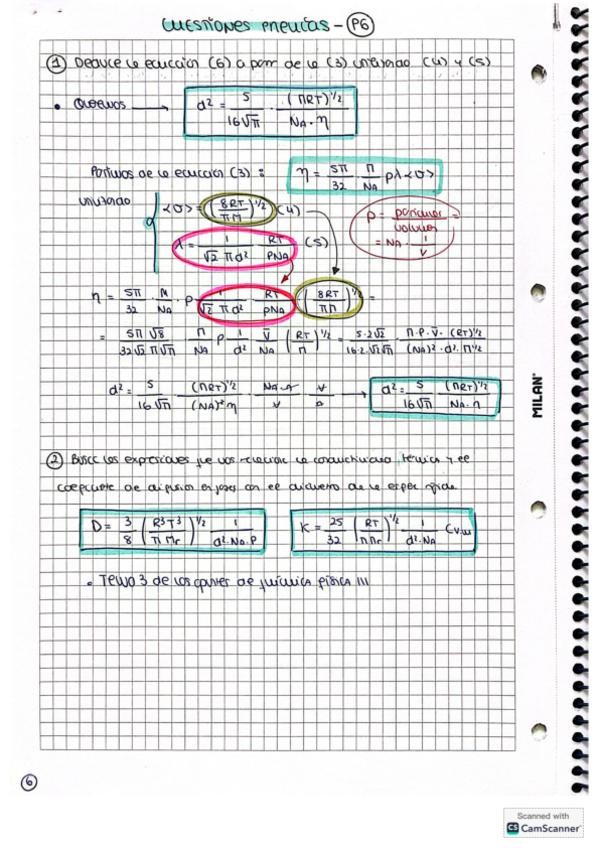 CUESTIONES PREVIAS - P6
① Deduce la ecuación (6) a partir de la (3) utilizando (4) y (5)
• Queremos → d² = 5/(16√π) · (MRT)^1/2 / (NA · η)
Partimos de la ecuación (3): η = 5π/32 · M/NA ρλ<v>
utilizando <v> = (8RT/πM)^1/2 (4)
λ = 1/(√2 π d²) · RT/(PNA) (5)
ρ = partículas/volumen =
= NA · 1/V
η = 5π/32 · M/NA · ρ · 1/(√2 π d²) · RT/(PNA) · (8RT/πM)^1/2 =
= 5π√8/(32√2 π√π) · M/NA · ρ · 1/d² · V̄/NA (RT/M)^1/2 = 5·2√2/(16·2·√2√π) · M·ρ·V̄·(RT)^1/2 / ((NA)²·d²·M^1/2)
d² = 5/(16√π) · (MRT)^1/2/((NA)² η) · → d² = 5/(16√π) · (MRT)^1/2/(NA·η)
② Busca las expresiones que nos relacionan la conductividad térmica y el
coeficiente de difusión en gases con el diámetro de la esfera rígida.
D = 3/8 (R³T³/πMr)^1/2 · 1/(d²·NA·P)
K = 25/32 (RT/πMr)^1/2 · 1/(d²·NA) Cv,m
• Tema 3 de los apuntes de química física III
6
MILAN
Scanned with
CS CamScanner